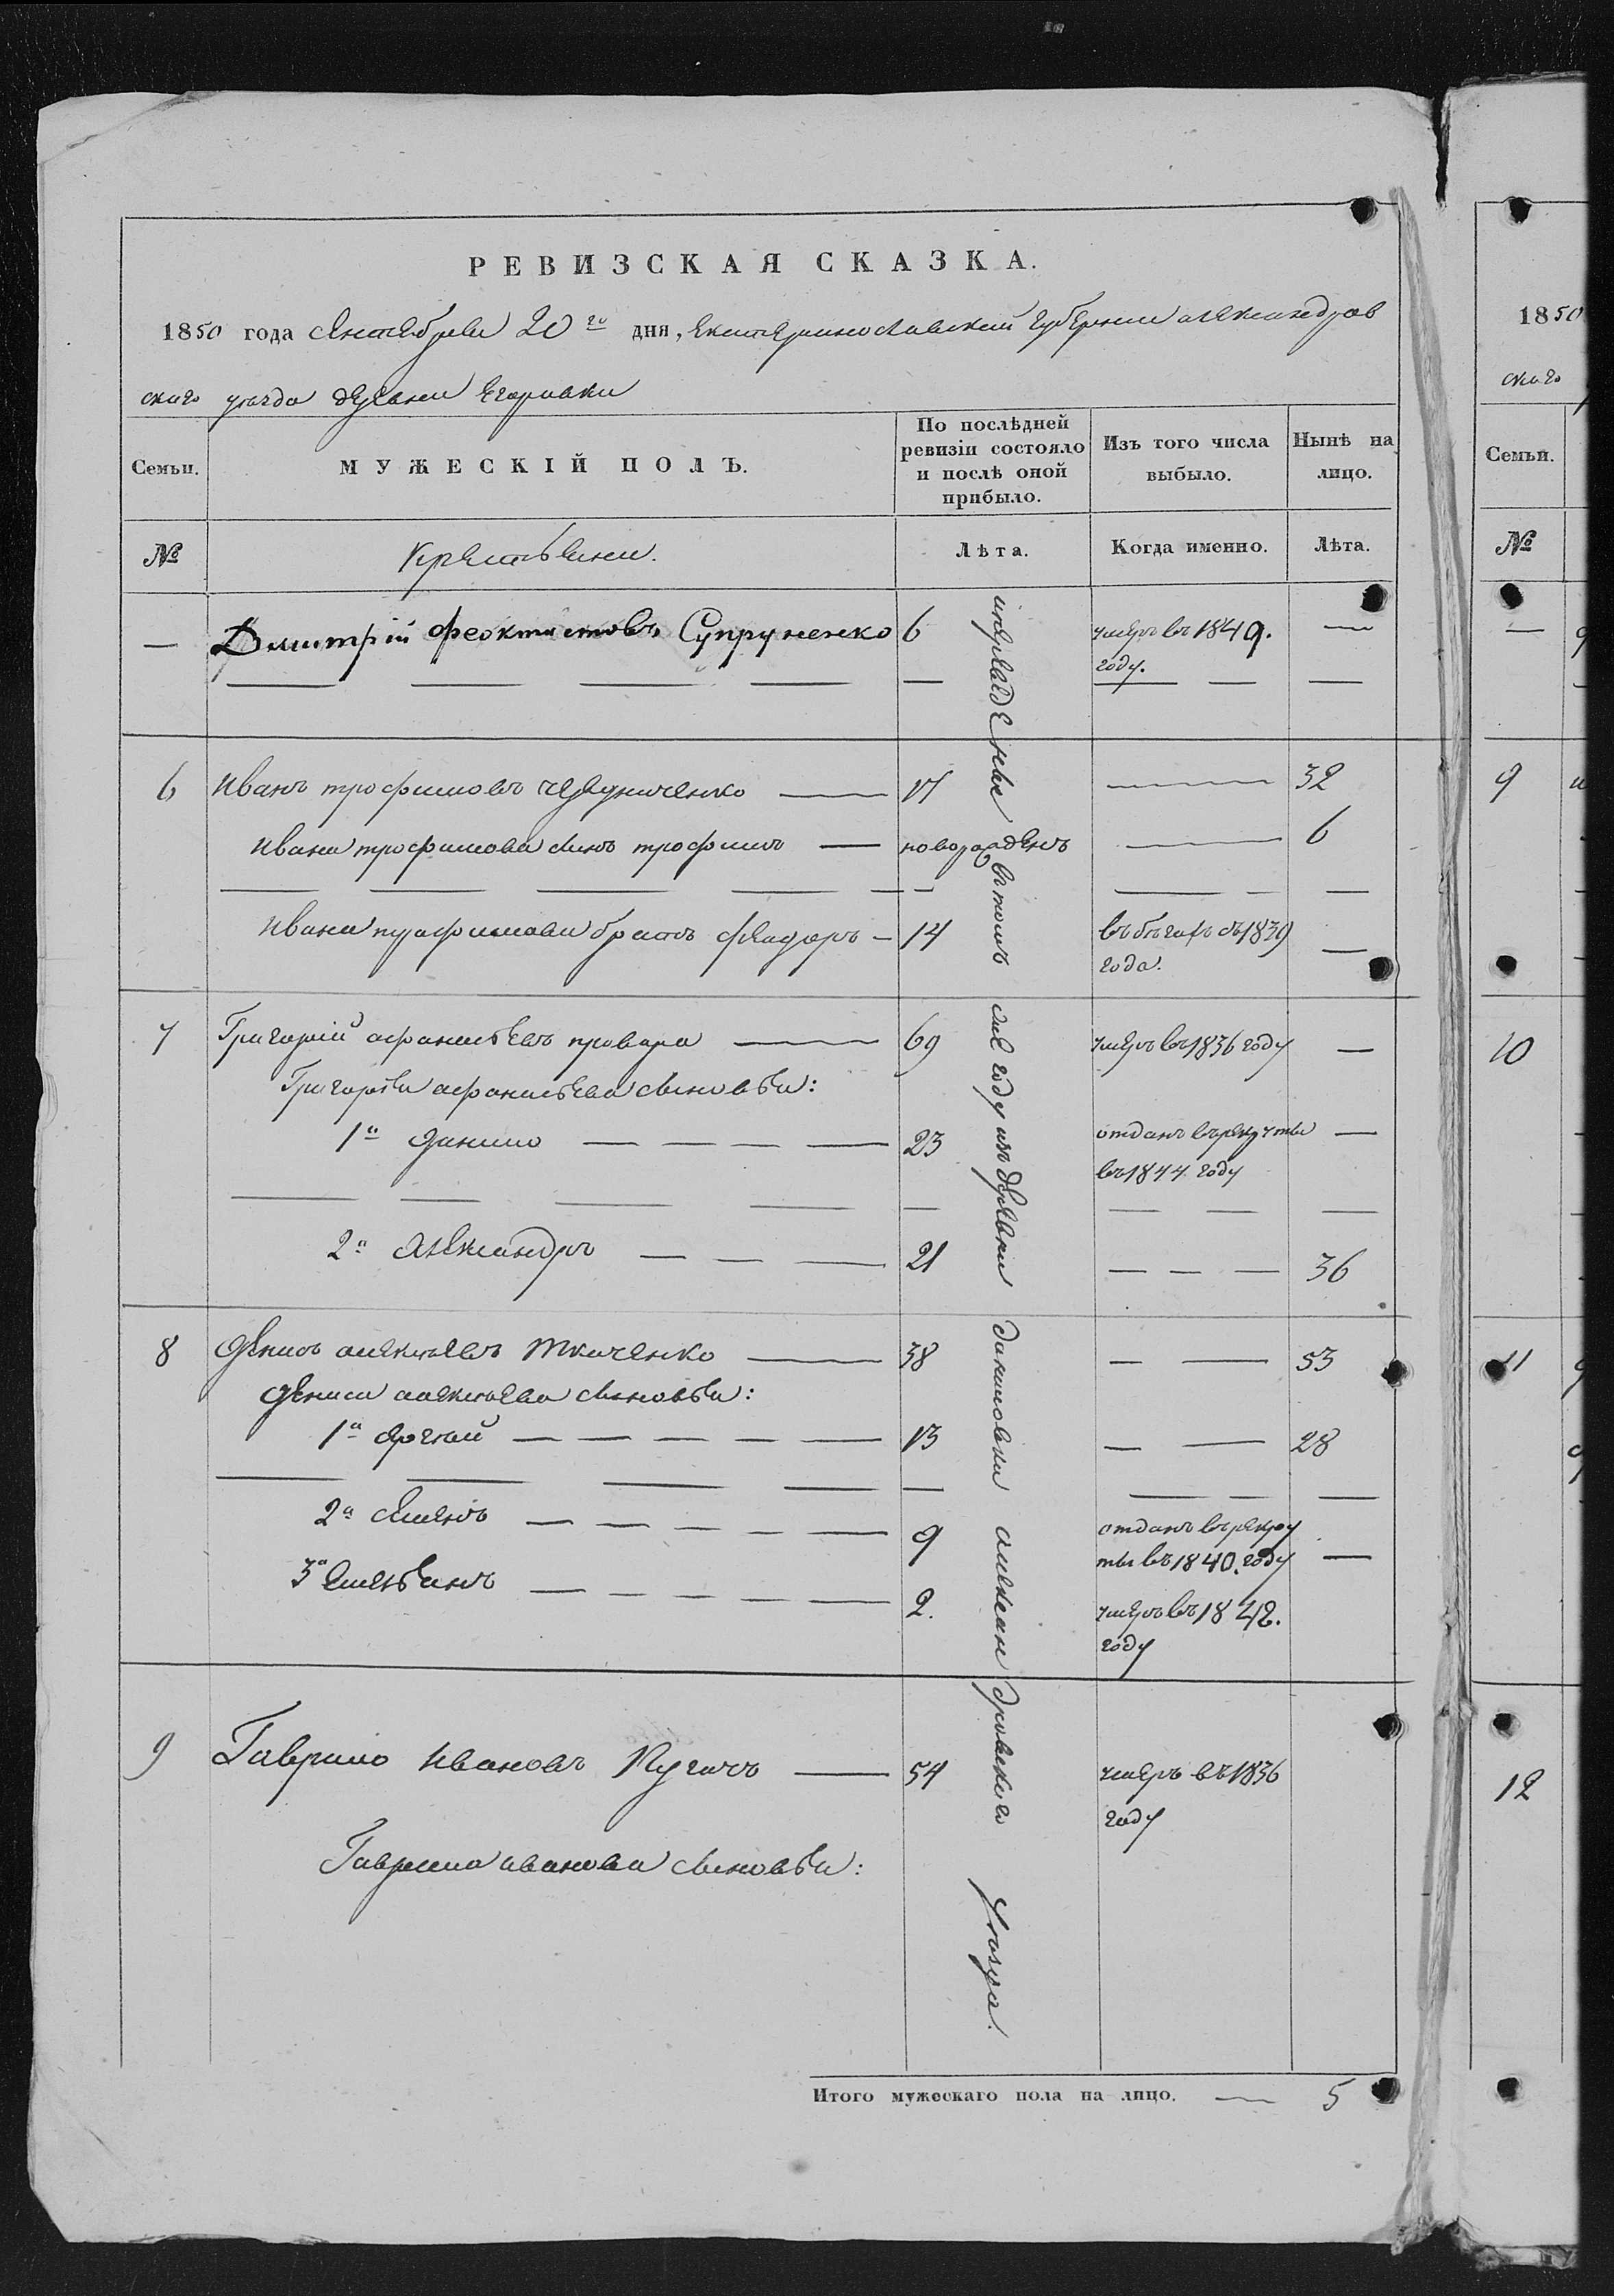 РЕВИЗСКАЯ СКАЗКА.
1850 года сентября 20го дня, Екатеринославской губернии александров
скаго уезда деревни Егоровки
Семьи. МУЖЕСКІЙ ПОЛЪ. По послѣдней ревизіи состояло и послѣ оной прибыло. Изъ того числа выбыло. Нынѣ на лицо.
№ Крестьяни. Лѣта. Когда именно. Лѣта.
— Дмитрій Феоктистовъ Супруненко 6 умеръ въ 1849. году. —
6 Иванъ трофимовъ чередниченко — 17 — 32
Ивана трофимова сынъ трофимъ — новорожденъ — 6
Ивана трофимова братъ федоръ — 14 въ бегахъ съ 1839 года. —
7 Григорій афанасьевъ провора — 69 умеръ въ 1836 году —
Григорья афанасьева сыновья:
1й данило — — — — 23 отданъ въ рекруты въ 1844 году —
2й Александръ — — — 21 — — — 36
8 Денисъ алексеевъ Ткаченко — 38 — — 53
Дениса алексеева сыновья:
1й — — — — — 13 — — 28
2й Семенъ — — — — — 9 отданъ въ рекру ты въ 1840. году —
3й Емельянъ — — — — — 2. умеръ въ 1842. году
9 Гаврило Ивановъ — 54 умеръ въ 1836 году
Гаврила иванова сыновья:
переведены въ томъ же году изъ деревни даниловки александровскаго уезда.
Итого мужескаго пола на лицо. — 5
1850
скаго
Семьи.
№
—
9
10
11
12